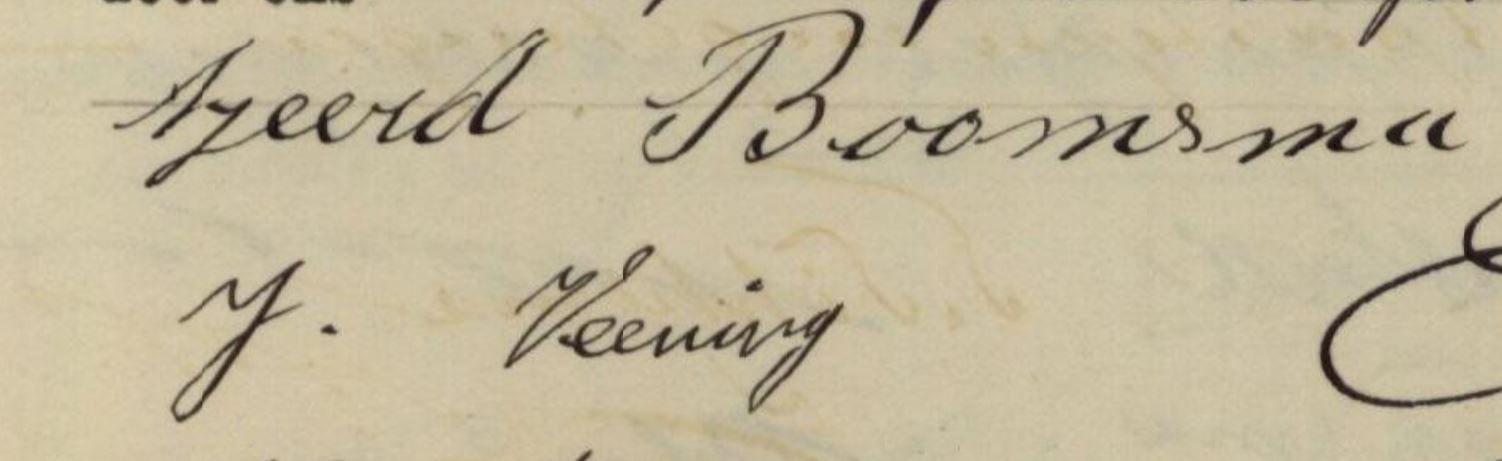 tjeerd Boomsma
J. Veening